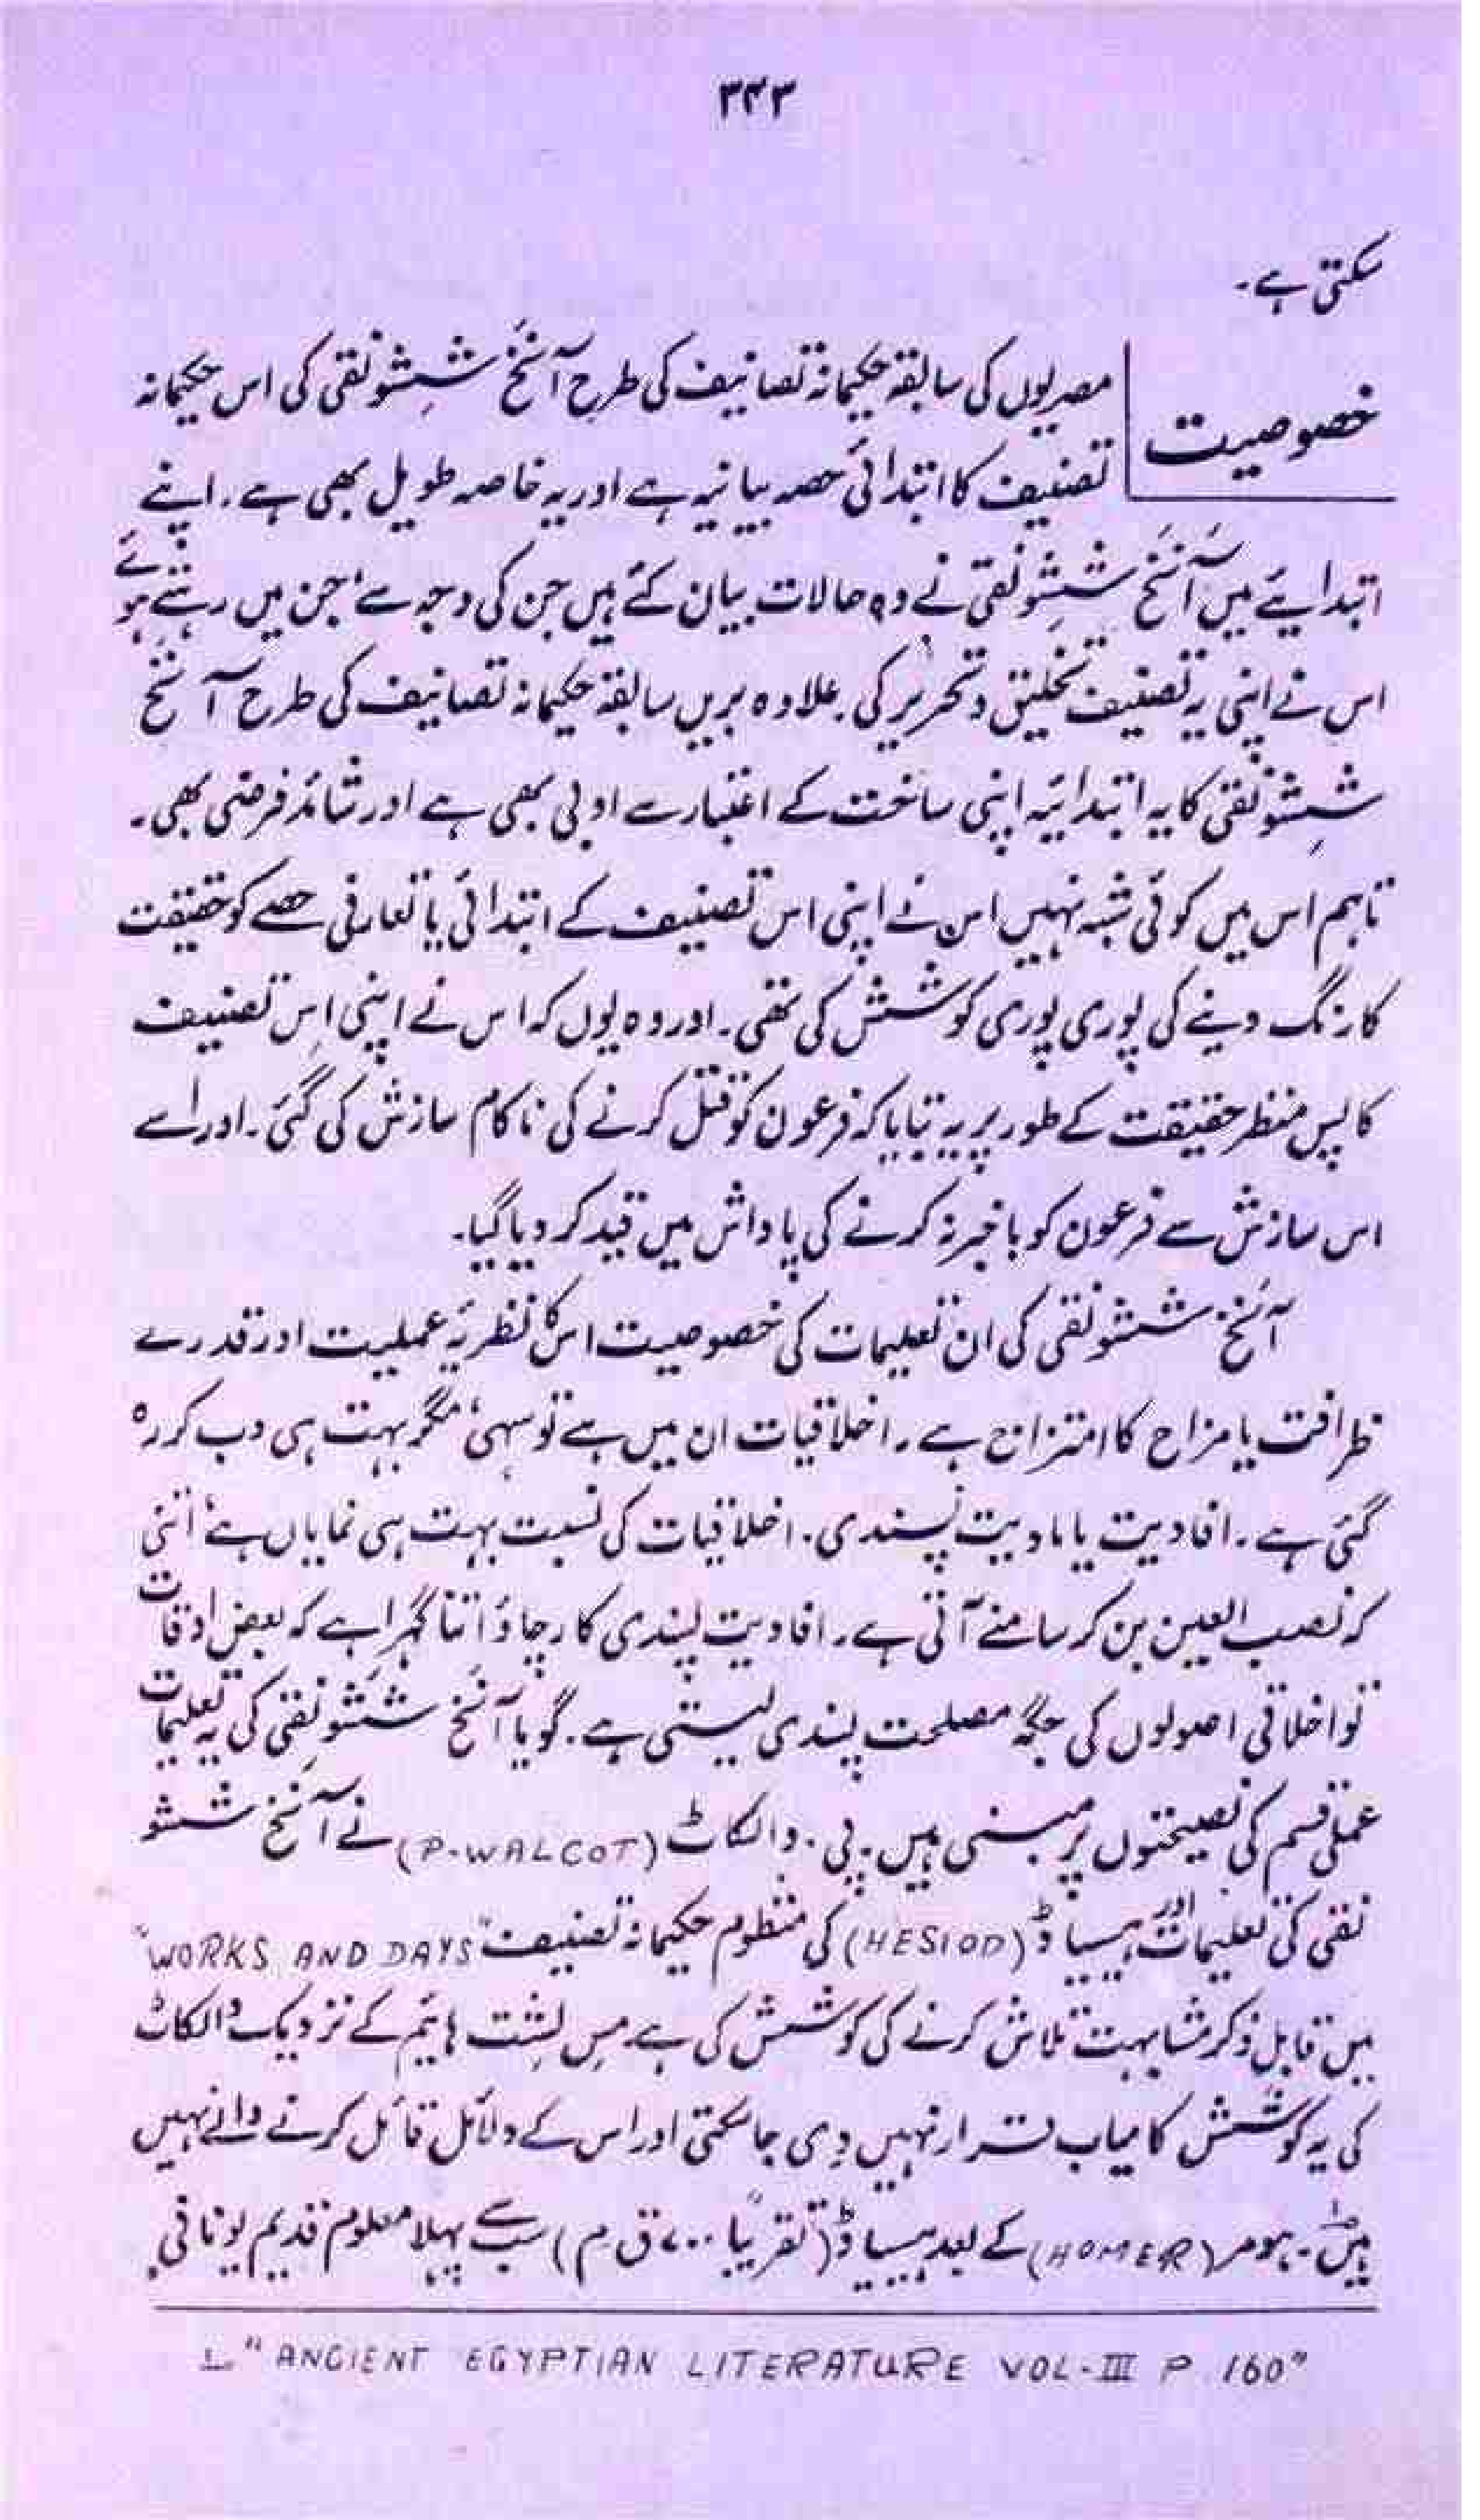 ۳۴۳
سکتی ہے۔
خصوصیت
مصریوں کی سابقہ حکیمانہ تصانیف کی طرح آنخ شِشونقی کی اس حکیمانہ
تصنیف کا ابتدائی حصہ بیانیہ ہے اور یہ خاصہ طویل بھی ہے۔ اپنے
ابتدایئے میں آنَخ شِشونقی نے وہ حالات بیان کئے ہیں جن کی وجہ سے‘ جن میں رہتے ہوئے
اس نے اپنی یہ تصنیف تخلیق و تحریر کی۔ علاوہ بریں سابقہ حکیمانہ تصانیف کی طرح آنَخ
شِشونقی کا یہ ابتدائیہ اپنی ساخت کے اعتبار سے ادبی بھی ہے اور شائد فرضی بھی۔
تاہم اس میں کوئی شبہ نہیں اس نے اپنی اس تصنیف کے ابتدائی یا تعارفی حصے کو حقیقت
کا رنگ دینے کی پوری پوری کوشش کی تھی۔ اور وہ یوں کہ اس نے اپنی اِس تصنیف
کا پس منظر حقیقت کے طور پر یہ بتایا کہ فرعون کو قتل کرنے کی ناکام سازش کی گئی۔ اور اسے
اس سازش سے فرعون کو باخبر نہ کرنے کی پاداش میں قید کر دیا گیا۔
آنَخ ششونقی کی ان تعلیمات کی خصوصیت اس کا نظریۂ عملیت اور قدرے
ظرافت یا مزاح کا امتزاج ہے۔ اخلاقیات ان میں ہے تو سہی‘ مگر بہت ہی دب کر رہ
گئی ہے۔ افادیت یا مادیت پسندی۔ اخلاقیات کی نسبت بہت ہی نمایاں ہے‘ اتنی
کہ نصب العین بن کر سامنے آتی ہے۔ افادیت پسندی کا رچاؤ اتنا گہرا ہے کہ بعض اوقات
تو اخلاقی اصولوں کی جگہ مصلحت پسندی لیتی ہے۔ گویا آنَخ شَشونِقی کی یہ تعلیمات
عملی قسم کی نصیحتوں پر مبنی ہیں۔ پی۔ والکاٹ (P-WALCOT) نے آنخ ششو
نقی کی تعلیمات اور ہیسیاڈ (HESIOD) کی منظوم حکیمانہ تصنیف "WORKS AND DAYS"
میں قابل ذکر مشابہت تلاش کرنے کی کوشش کی ہے۔ مِس لِشت ہائیم کے نزدیک والکاٹ
کی یہ کوشش کامیاب قرار نہیں دی جا سکتی اور اس کے دلائل قائل کرنے والے نہیں
ہیں۔ ہومر (HOMER) کے بعد ہیسیاڈ (تقریباً ۷۰۰ ق م) سب سے پہلا معلوم قدیم یونانی
۱؎ "ANCIENT EGYPTIAN LITERATURE VOL-III P 160"